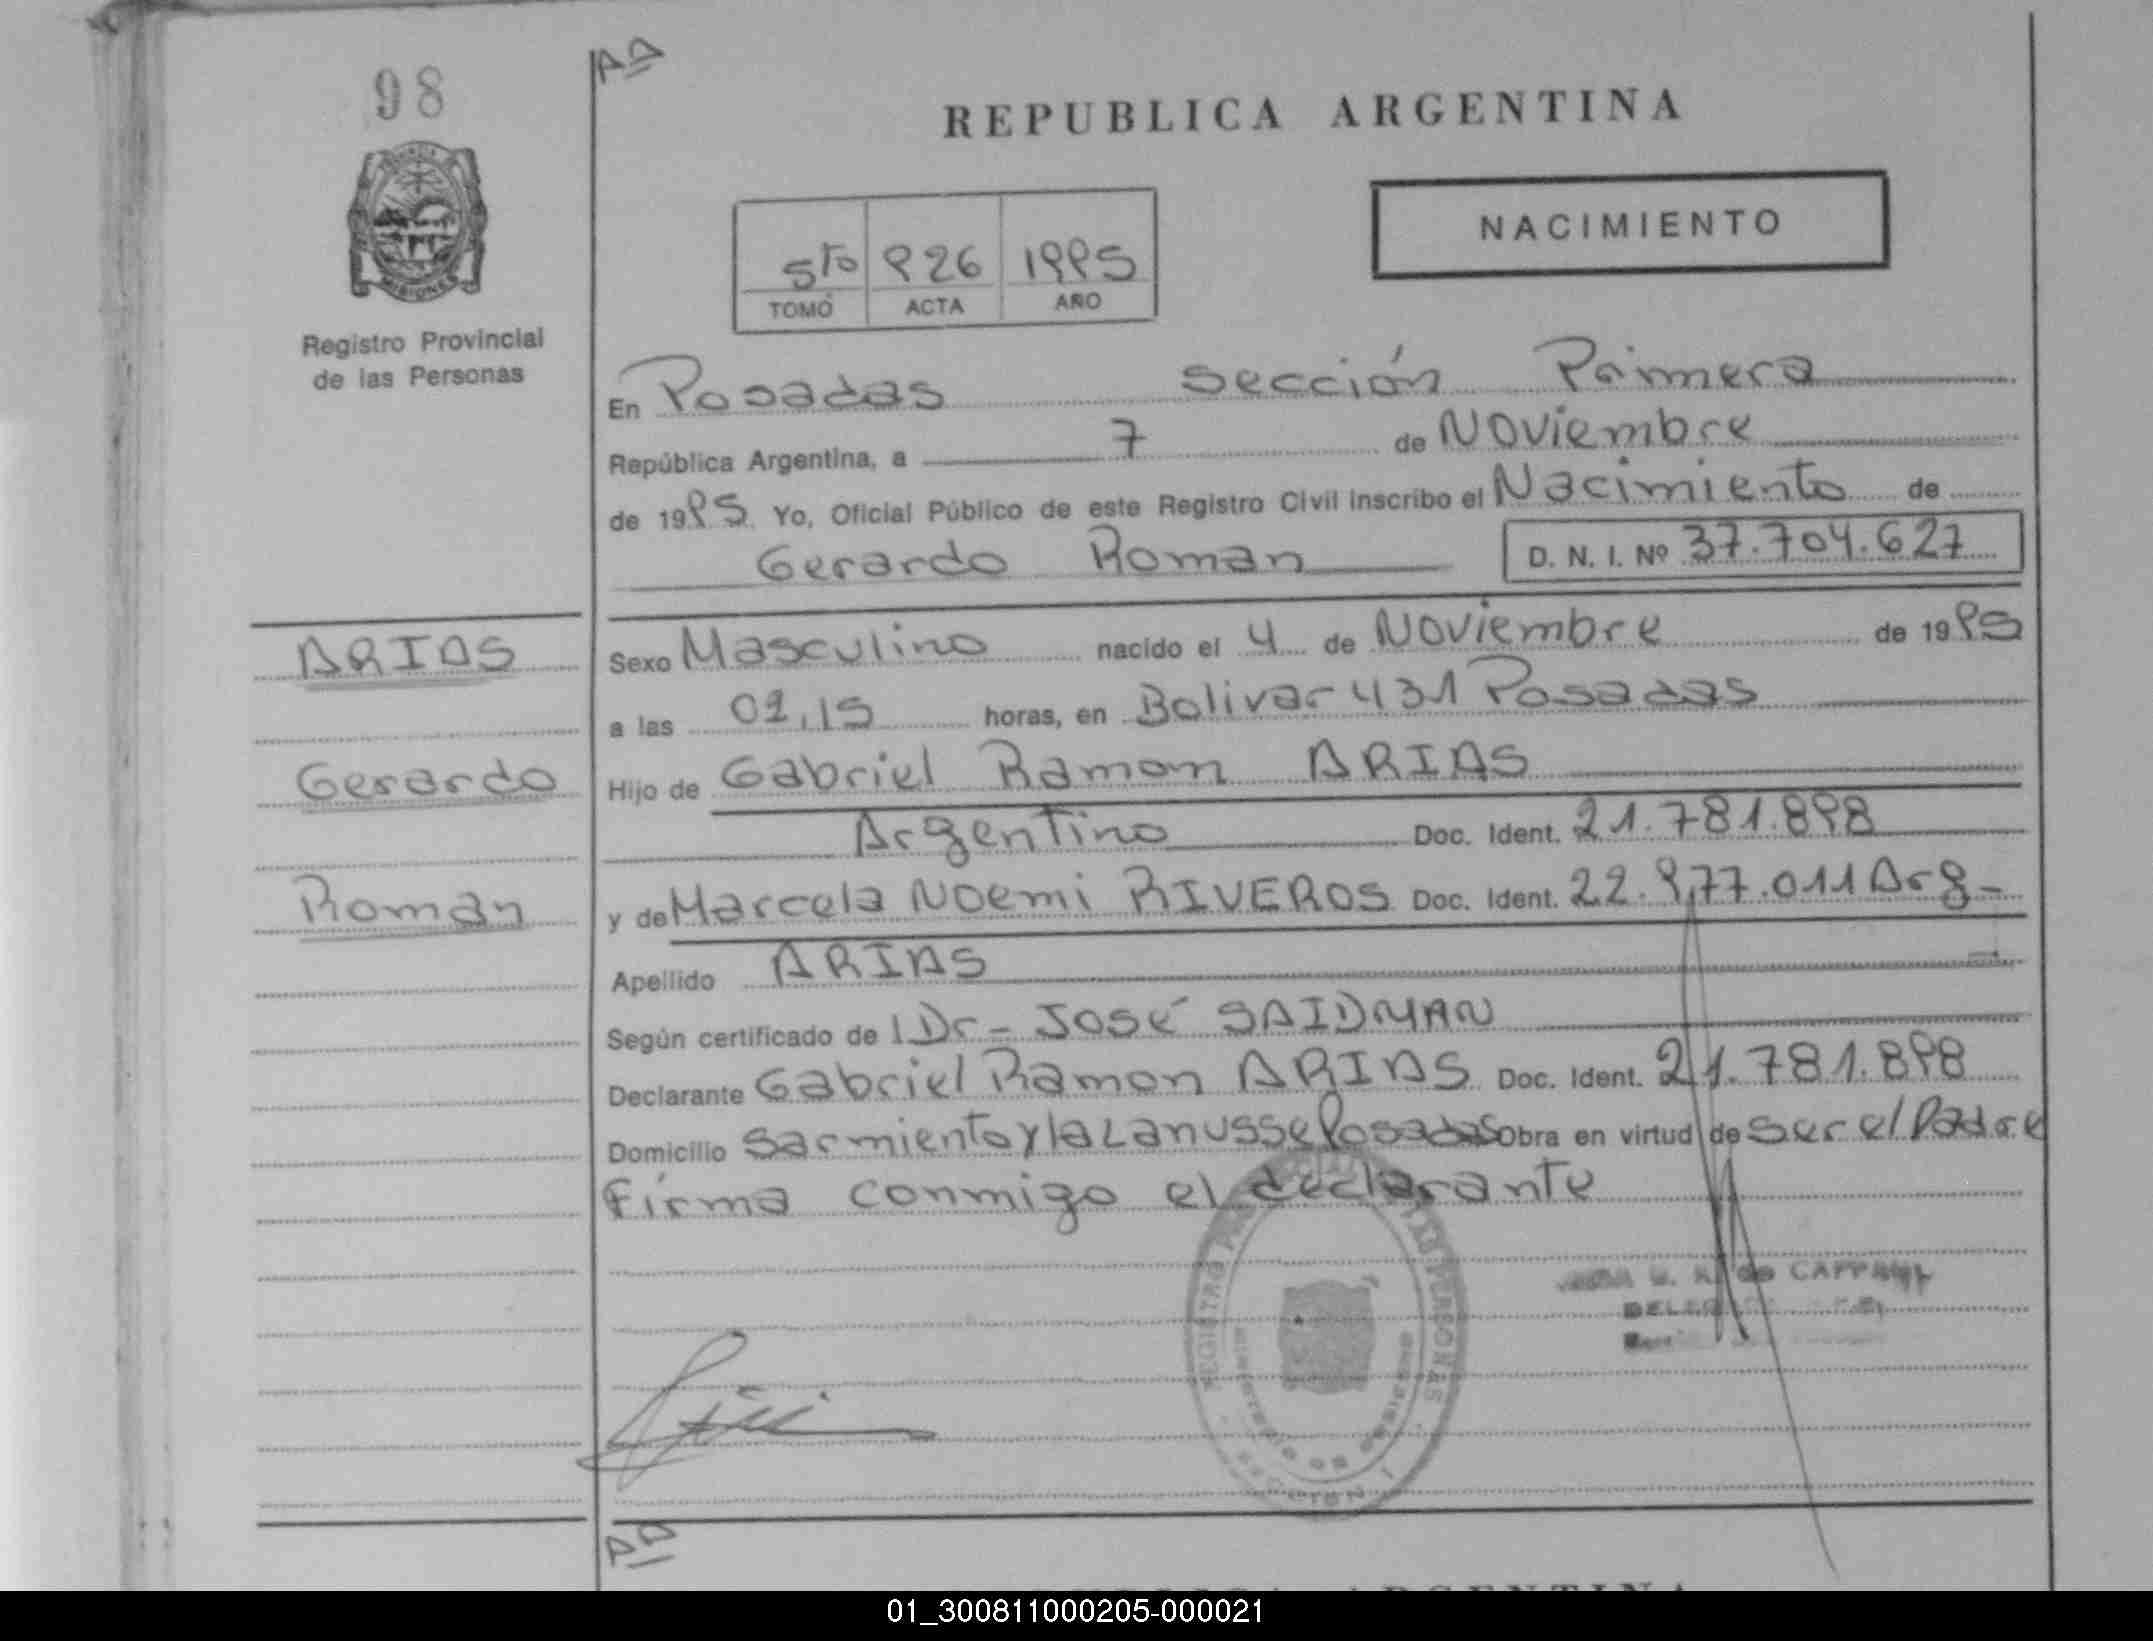 98
AA
REPUBLICA ARGENTINA
NACIMIENTO
5to 926 1995
TOMO ACTA AÑO
PROVINCIA DE
MISIONES
Registro Provincial
de las Personas
En Posadas sección Primera
República Argentina, a 7 de Noviembre
de 1995 Yo, Oficial Público de este Registro Civil inscribo el Nacimiento de
Gerardo Roman D. N. I. Nº 37.704.627
ARIAS
Gerardo
Roman
Sexo Masculino nacido el 4 de Noviembre de 1995
a las 01,15 horas, en Bolivar 431 Posadas
Hijo de Gabriel Ramon ARIAS
Argentino Doc. Ident. 21.781.898
y de Marcela Noemi RIVEROS Doc. Ident. 22.977.011 Arg-
Apellido ARIAS
Según certificado de l Dr- José SAIDMAN
Declarante Gabriel Ramon ARIAS Doc. Ident. 21.781.898
Domicilio Sarmiento y la Lanusse Posadas Obra en virtud de ser el Padre
Firma conmigo el declarante
REGISTRO DE LAS PERSONAS
DE
AA
REPUBLICA ARGENTINA
01_300811000205-000021